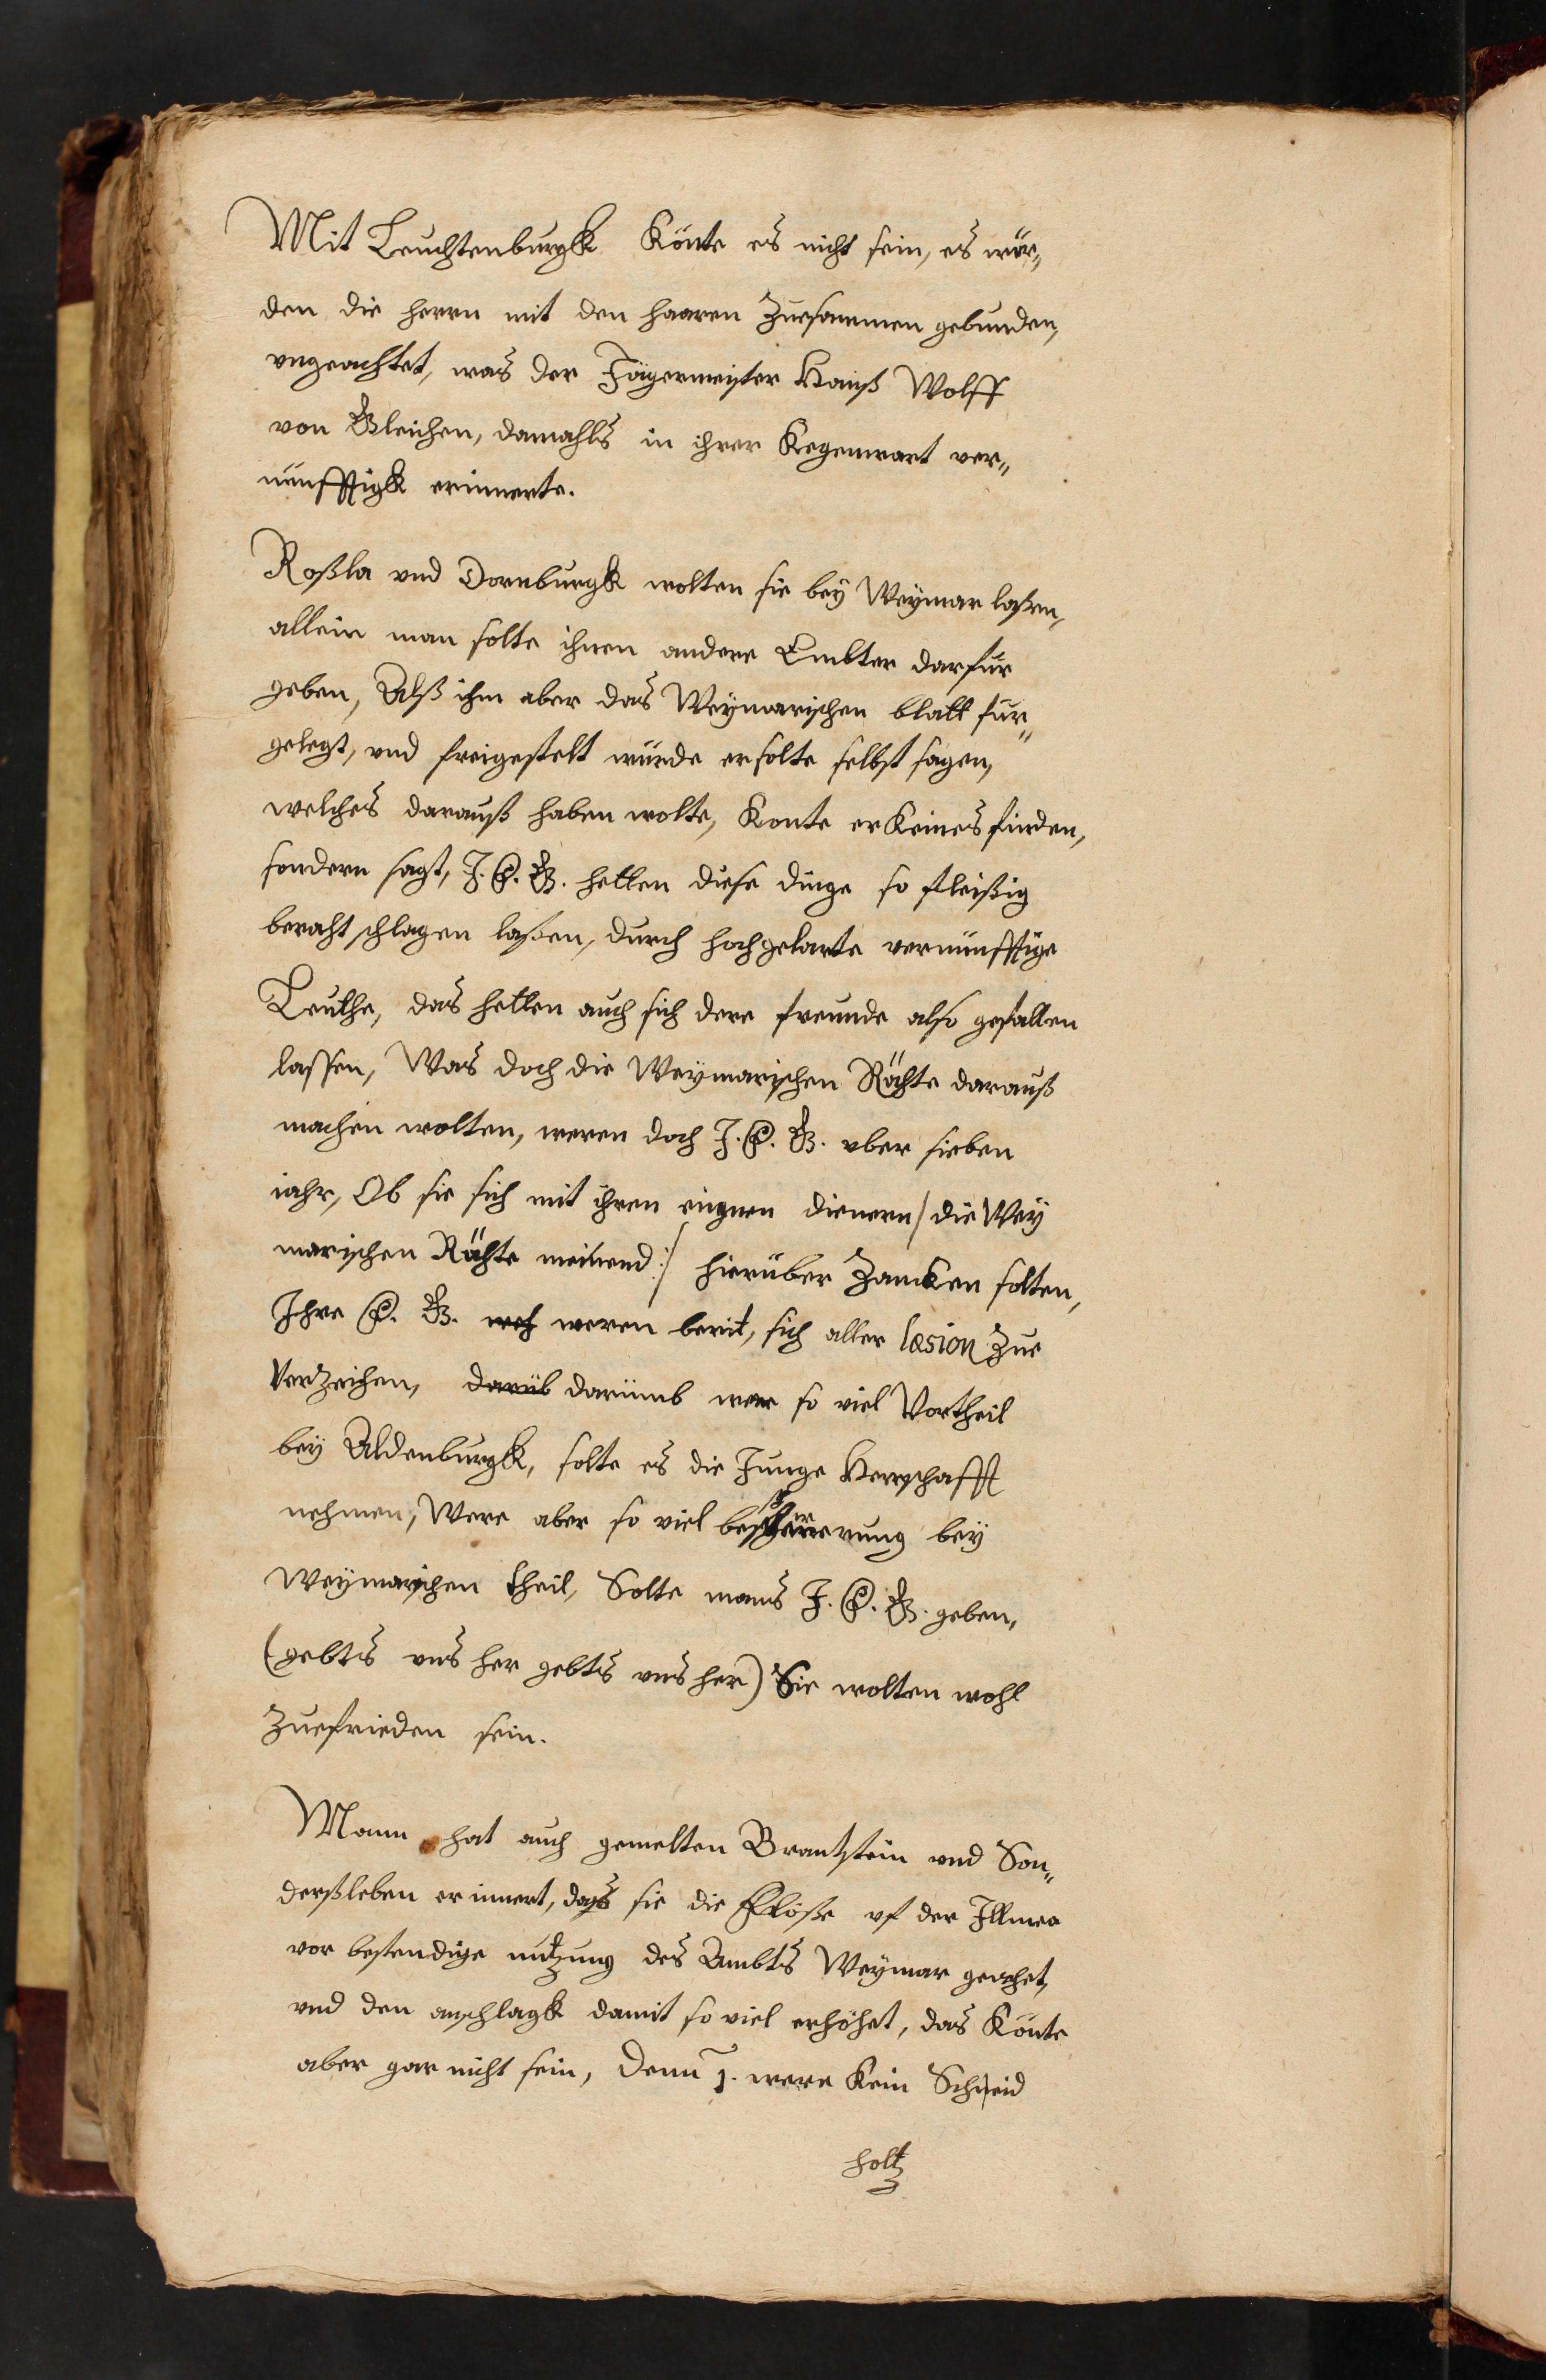 Mit Leuchtenburgk Könte es nicht sein, es wür„
den die herrn mit den haaren Zuesammen gebunden,
vngeachtet, was der Jägermeister Hanß Wolff
von Gleichen, damahls in ihrer Kegenwart ver„
nünfftigk erinnerte.
Roßla vnd Dornburgk wolten sie bey Weymar laßen,
allein man solte ihnen andere Embter darfür
geben, Alß ihm aber das Weymarischen blatt für„
gelegt, vnd freigestelt würde er solte selbst sagen,
welches darauß haben wolte, Konte er Keines finden,
sondern sagt, J. F. G. hetten diese dinge so fleißig
berahtschlagen laßen, durch hochgelarte vernünfftige
Leuthe, das hetten auch sich dere freunde also gefallen
lassen, Was doch die Weymarischen Rähte darauß
machen wolten, weren doch J. F. G. vber sieben
iahr, Ob sie sich mit ihren eignen dienern / die Wey
marischen Rähte meinend :/ hierüber Zancken solten,
Ihre F. G. weren bereit, sich aller læsion Zue
Verzeihen, darüb darümb wer so viel Vortheil
bey Aldenburgk, solte es die Junge Herrschafft
nehmen, Were aber so viel beßerung bey
Weymarischen theil, Solte mans J. F. G. geben,
(gebts vns her gebts vns her) Sie wolten wohl
Zuefrieden sein.
Mann hat auch gemelten Brantstein vnd Son„
derßleben erinnert, das sie die Flöße vf der Illmen
vor bestendige nutzung des Ambts Weymar geachet,
vnd den anschlagk damit so viel erhöhet, das Könte
aber gar nicht sein, Denn 1. were Kein Scheid
holtz